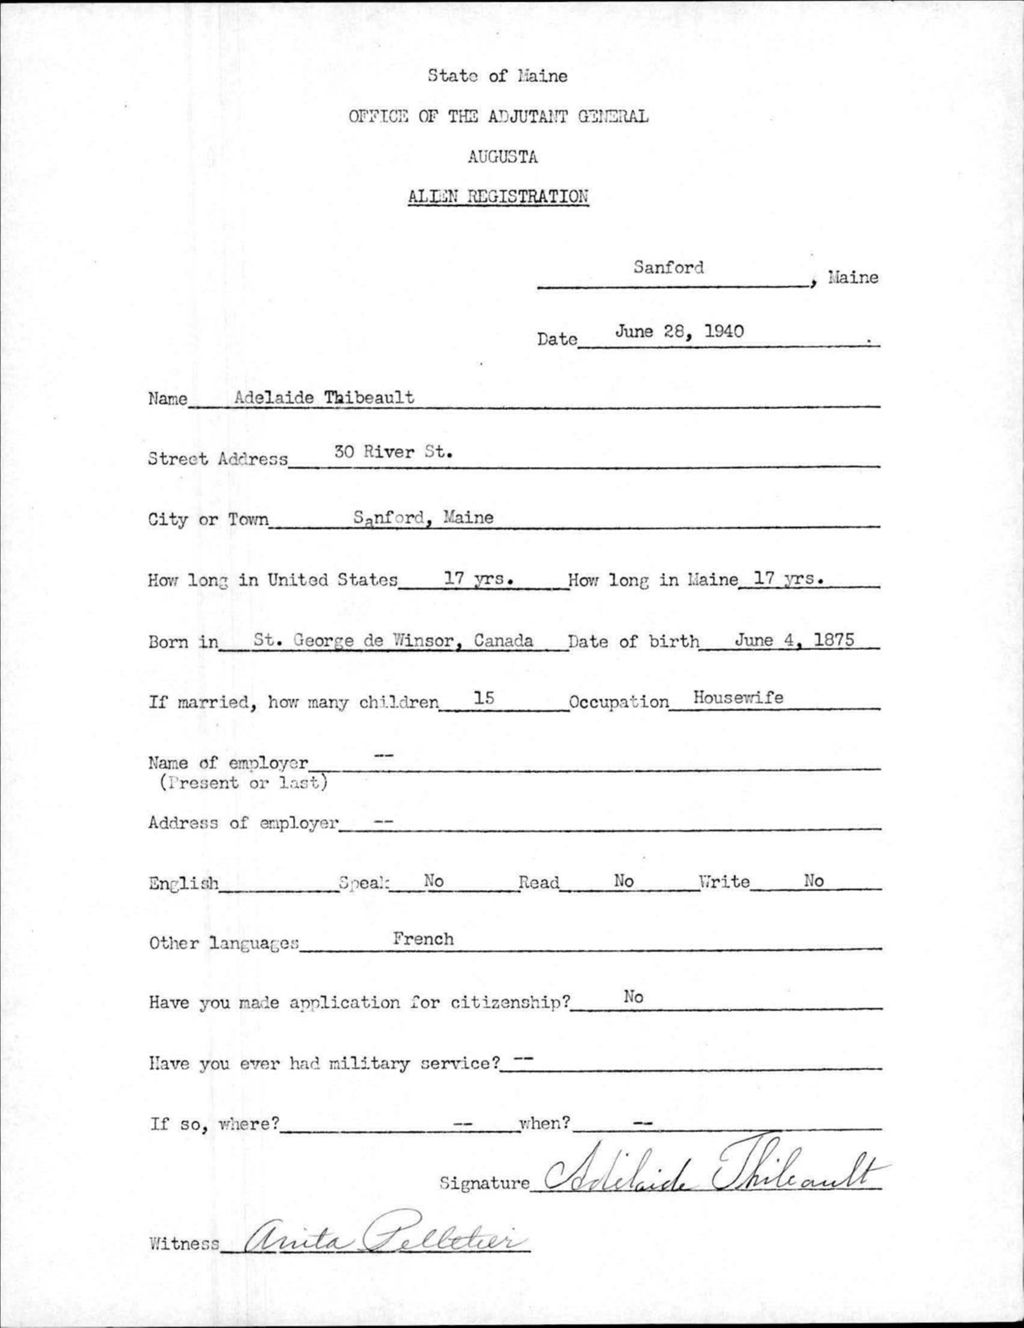 State of Maine
OFFICE OF THE ADJUTANT GENERAL
AUGUSTA
ALIEN REGISTRATION
Sanford, Maine
Date June 28, 1940.
Name Adelaide Thibeault
Street Address 30 River St.
City or Town Sanford, Maine
How long in United States 17 yrs. How long in Maine 17 yrs.
Born in St. George de Winsor, Canada Date of birth June 4, 1875
If married, how many children 15 Occupation Housewife
Name of employer --
(Present or last)
Address of employer --
English Speak No Read No Write No
Other languages French
Have you made application for citizenship? No
Have you ever had military service? --
If so, where? -- when? --
Signature Adelaide Thibeault
Witness Anita Pelletier